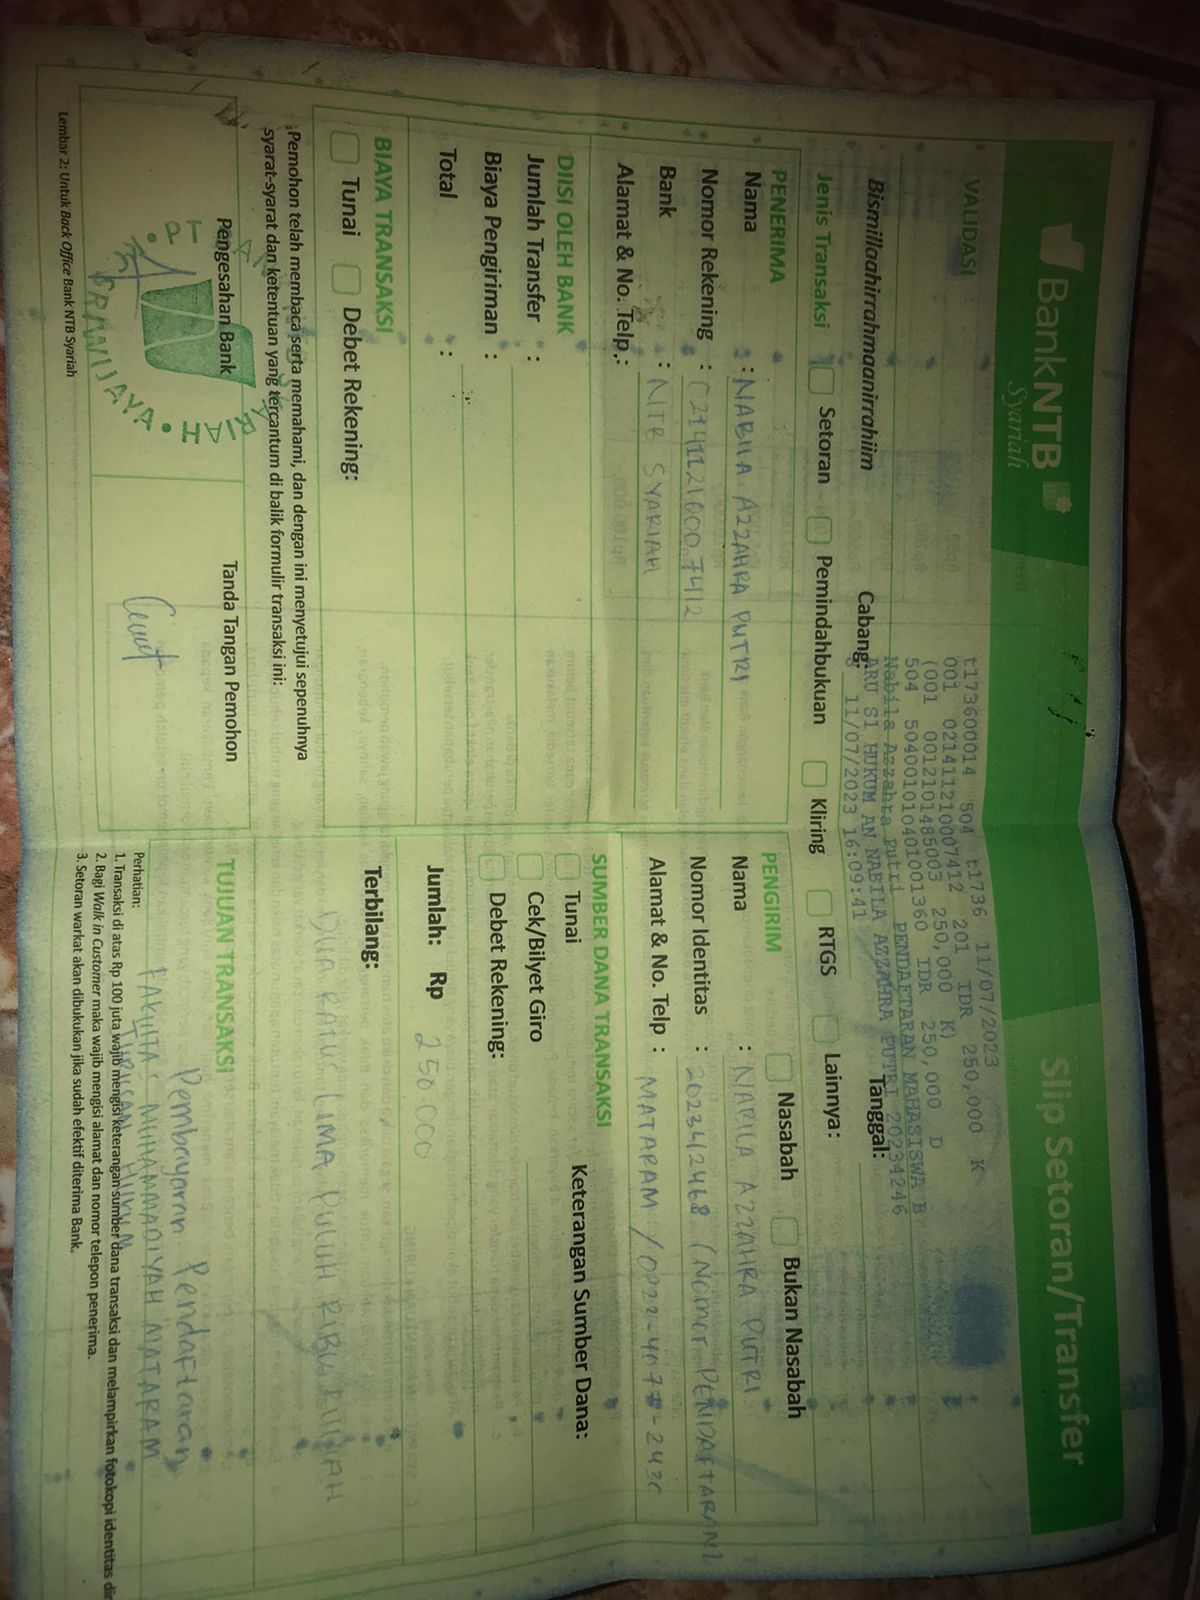 BankNTB
Syariah
Slip Setoran/Transfer
VALIDASI
t173600014 504 t1736 11/07/2023
001 021411210007412 201 IDR 250,000 K
(001 0012101485003 250,000 K)
504 504001010401001360 IDR 250,000 D
Nabila Azzahra Putri PENDAFTARAN MAHASISWA B
ARU S1 HUKUM AN NABILA AZZAHRA PUTRI 20234246
8 11/07/2023 16:09:41
Bismillaahirrahmaanirrahiim
Cabang:
Tanggal:
Jenis Transaksi
Setoran
Pemindahbukuan
Kliring
RTGS
Lainnya:
PENERIMA
Nama : NABILA AZZAHRA PUTRI
Nomor Rekening : 021411210007412
Bank : NTB SYARIAH
Alamat & No. Telp :
PENGIRIM
Nasabah
Bukan Nasabah
Nama : NABILA AZZAHRA PUTRI
Nomor Identitas : 202342468 (NOMOR PENDAFTARAN)
Alamat & No. Telp : MATARAM /
DIISI OLEH BANK
Jumlah Transfer :
Biaya Pengiriman :
Total :
SUMBER DANA TRANSAKSI
Tunai
Keterangan Sumber Dana:
Cek/Bilyet Giro
Debet Rekening:
Jumlah: Rp 250.000
BIAYA TRANSAKSI
Tunai
Debet Rekening:
Terbilang:
DUA RATUS LIMA PULUH RIBU RUPIAH
Pemohon telah membaca serta memahami, dan dengan ini menyetujui sepenuhnya
syarat-syarat dan ketentuan yang tercantum di balik formulir transaksi ini:
Pengesahan Bank
Tanda Tangan Pemohon
SRIWIJAYA
TUJUAN TRANSAKSI
Pembayaran Pendaftaran
FAKULTAS MUHAMMADIYAH MATARAM
JURUSAN HUKUM
Perhatian:
1. Transaksi di atas Rp 100 juta wajib mengisi keterangan sumber dana transaksi dan melampirkan fotokopi identitas
2. Bagi Walk in Customer maka wajib mengisi alamat dan nomor telepon penerima.
3. Setoran warkat akan dibukukan jika sudah efektif diterima Bank.
Lembar 2: Untuk Back Office Bank NTB Syariah